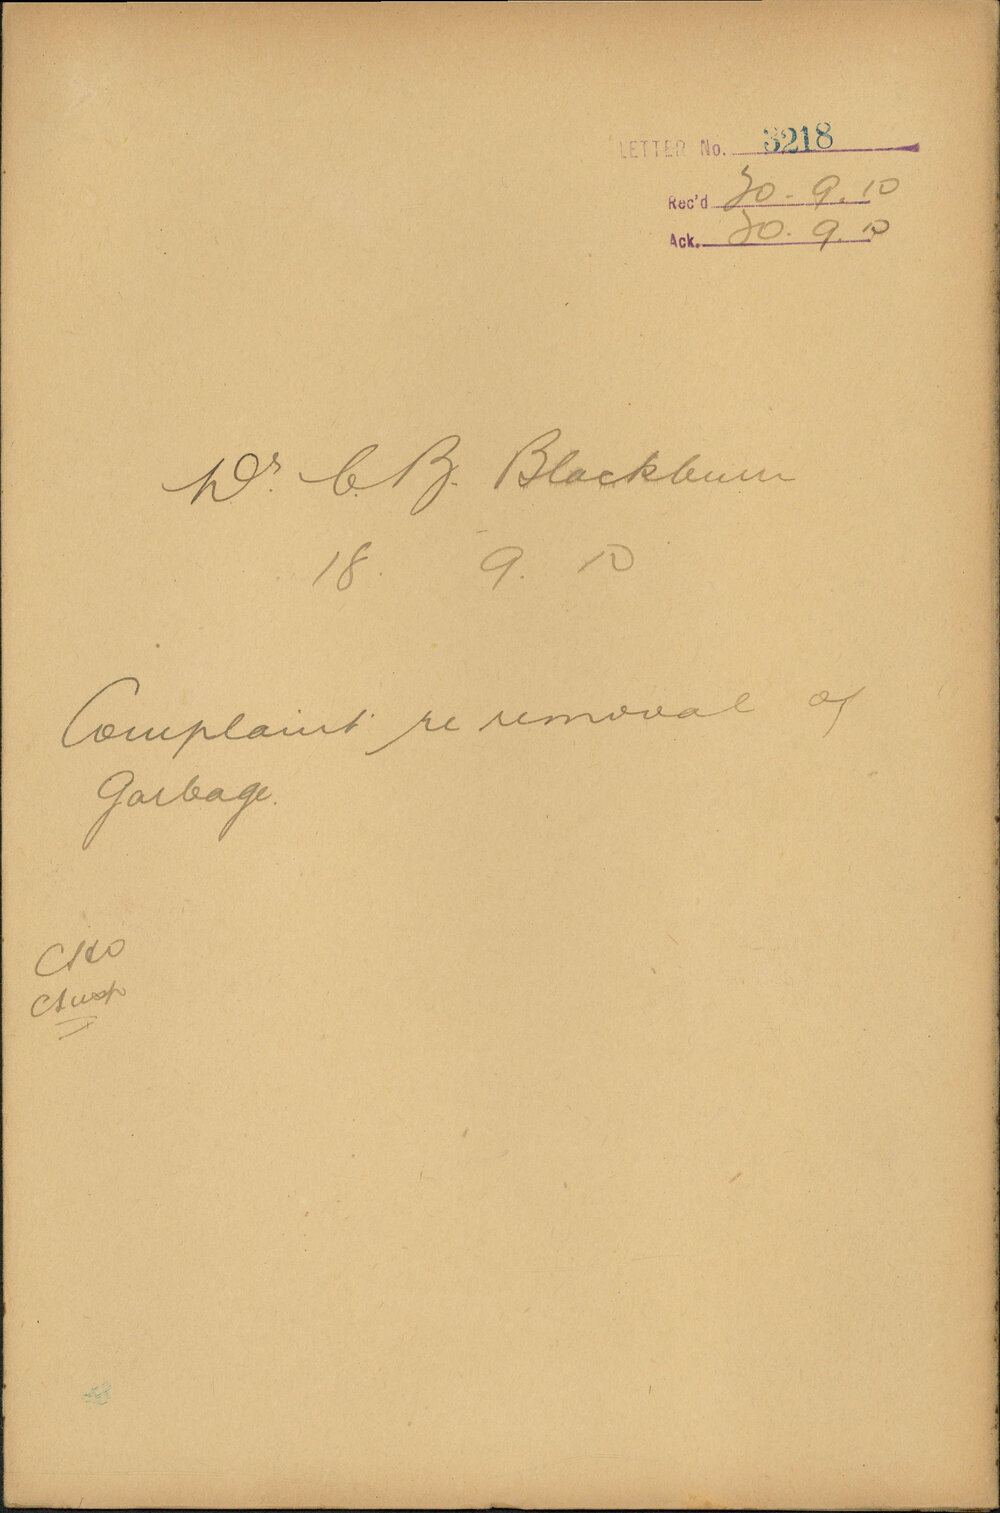 LETTER No. 3218
Rec'd 20. 9. 10
Ack. 20. 9. 10
Dr. C. B. Blackburn
18. 9. 10
Complaint re removal of
Garbage.